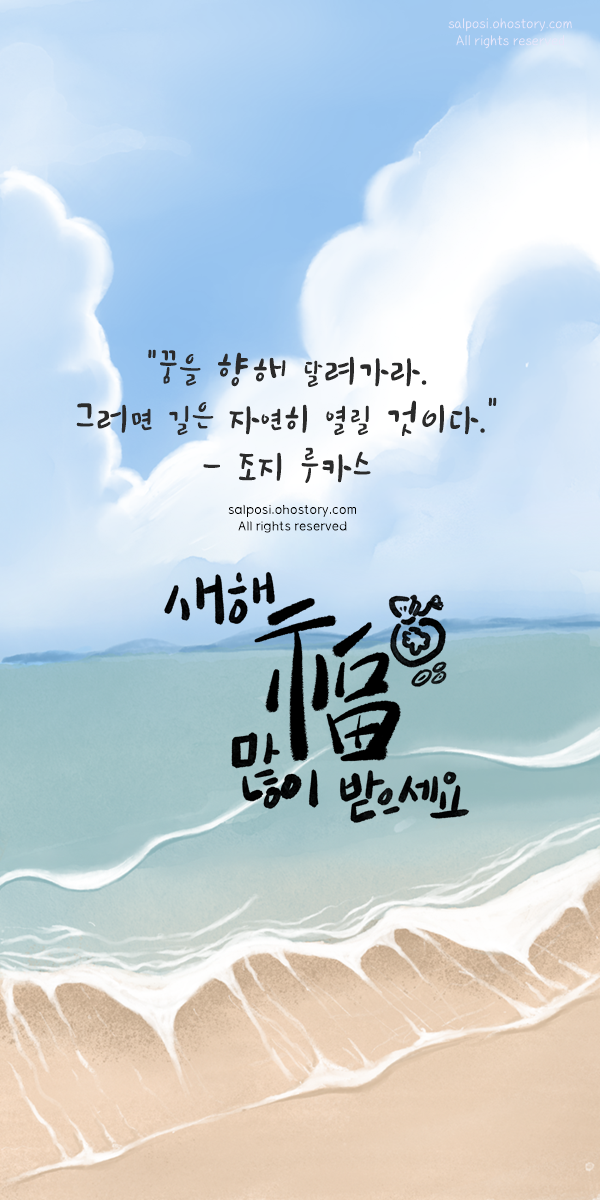 salposi.ohostory.com
All rights reserved
"꿍을 향해 달려가라.
그러면 길은 자연히 열릴 것이다."
- 조지 루카스
salposi.ohostory.com
All rights reserved
새해
福
많이 받으세요